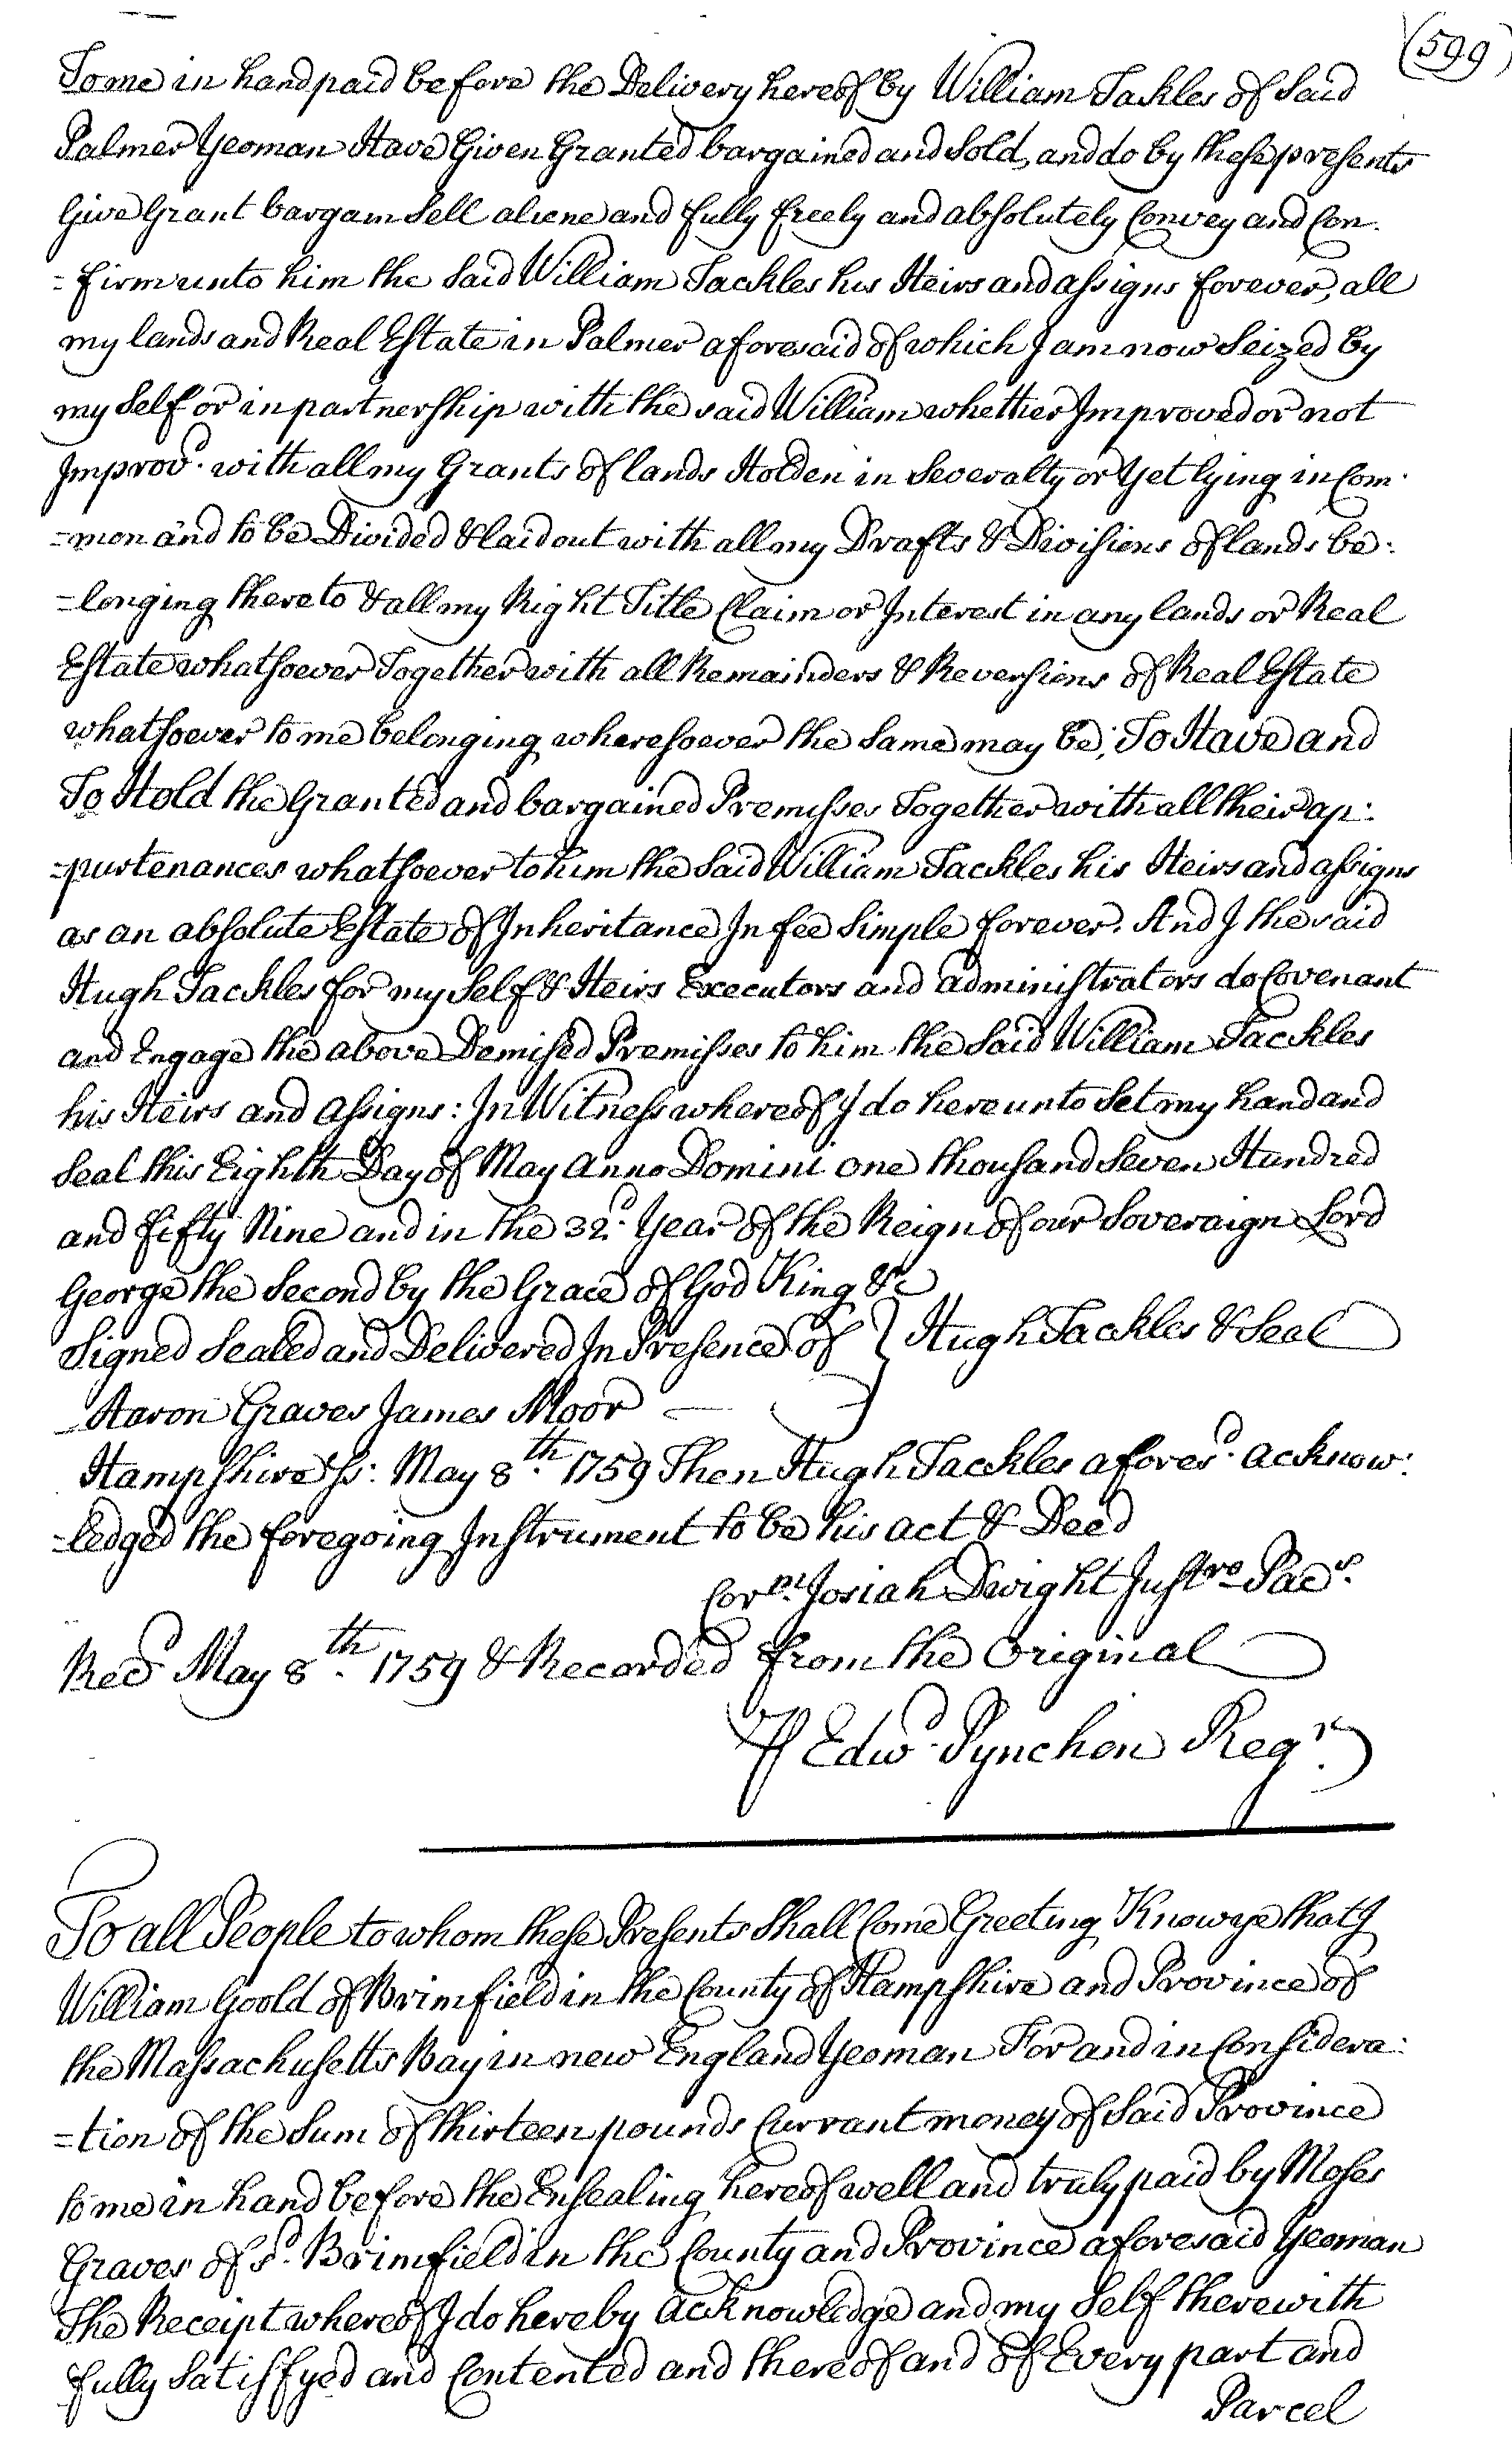 (599)
To me in hand paid before the Delivery hereof by William Tackles of Said
Palmer Yeoman Have Given Granted bargained and Sold, and do by these presents
Give Grant bargain Sell aliene and fully freely and absolutely Convey and Con-
=firm unto him the Said William Tackles his Heirs and assigns forever, all
my lands and Real Estate in Palmer aforesaid of which I am now Seized by
my Self or in partnership with the said William whether Improved or not
Improvd. with all my Grants of lands Holden in Severalty or Yet lying in Com-
=mon and to be Divided & laid out with all my Drafts & Divisions of lands be:
=longing thereto & all my Right Title Claim or Interest in any lands or Real
Estate whatsoever Together with all Remainders & Reversions of Real Estate
whatsoever to me belonging wheresoever the Same may be; To Have and
To Hold the Granted and bargained Premisses Together with all their ap:
=purtenances whatsoever to him the Said William Tackles his Heirs and assigns
as an absolute Estate of Inheritance In fee Simple forever. And I the said
Hugh Tackles for my Self & Heirs Executors and administrators do Covenant
and Engage the above Demised Premisses to him the Said William Tackles
his Heirs and assigns: In Witness whereof I do hereunto Set my hand and
Seal this Eighth Day of May Anno Domini one thousand Seven Hundred
and fifty Nine and in the 32d. Year of the Reign of our Soveraign Lord
George the Second by the Grace of God King &c
Signed Sealed and Delivered In Presence of } Hugh Tackles & Seal
Aaron Graves James Moor
Hampshire ss: May 8th. 1759 Then Hugh Tackles aforesd. acknow:
=ledged the foregoing Instrument to be his act & Deed
Corm. Josiah Dwight Justre Pacs.
Recd. May 8th. 1759 & Recorded from the Original
℔ Edwd. Pynchon Regr.
To all People to whom these Presents Shall Come Greeting Know ye that I
William Goold of Brimfield in the County of Hampshire and Province of
the Massachusetts Bay in new England Yeoman For and in Considera:
=tion of the Sum of thirteen pounds Currant money of Said Province
to me in hand before the Ensealing hereof well and truly paid by Moses
Graves of sd. Brimfield in the County and Province aforesaid Yeoman
The Receipt whereof I do hereby acknowledge and my Self therewith
fully Satisfyed and Contented and thereof and of Every part and
Parcel